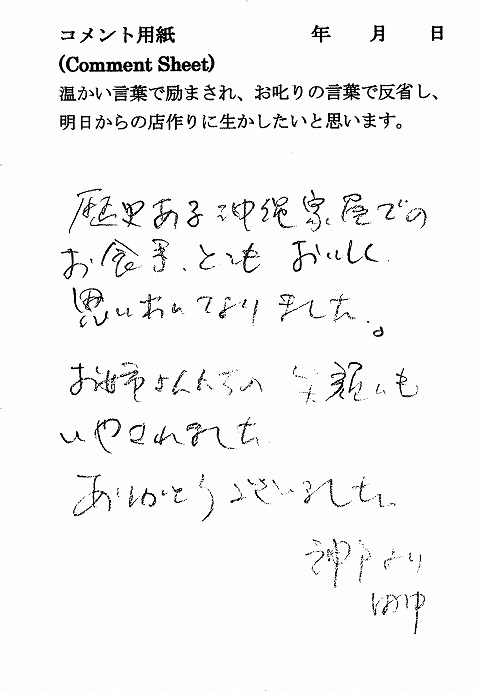 コメント用紙 年 月 日
(Comment Sheet)
温かい言葉で励まされ、お叱りの言葉で反省し、
明日からの店作りに生かしたいと思います。
歴史ある沖縄家屋での
お食事、とてもおいしく
思い
お姉さんたちの笑顔にも
いやされました
ありがとうございました。
神戸より
田中